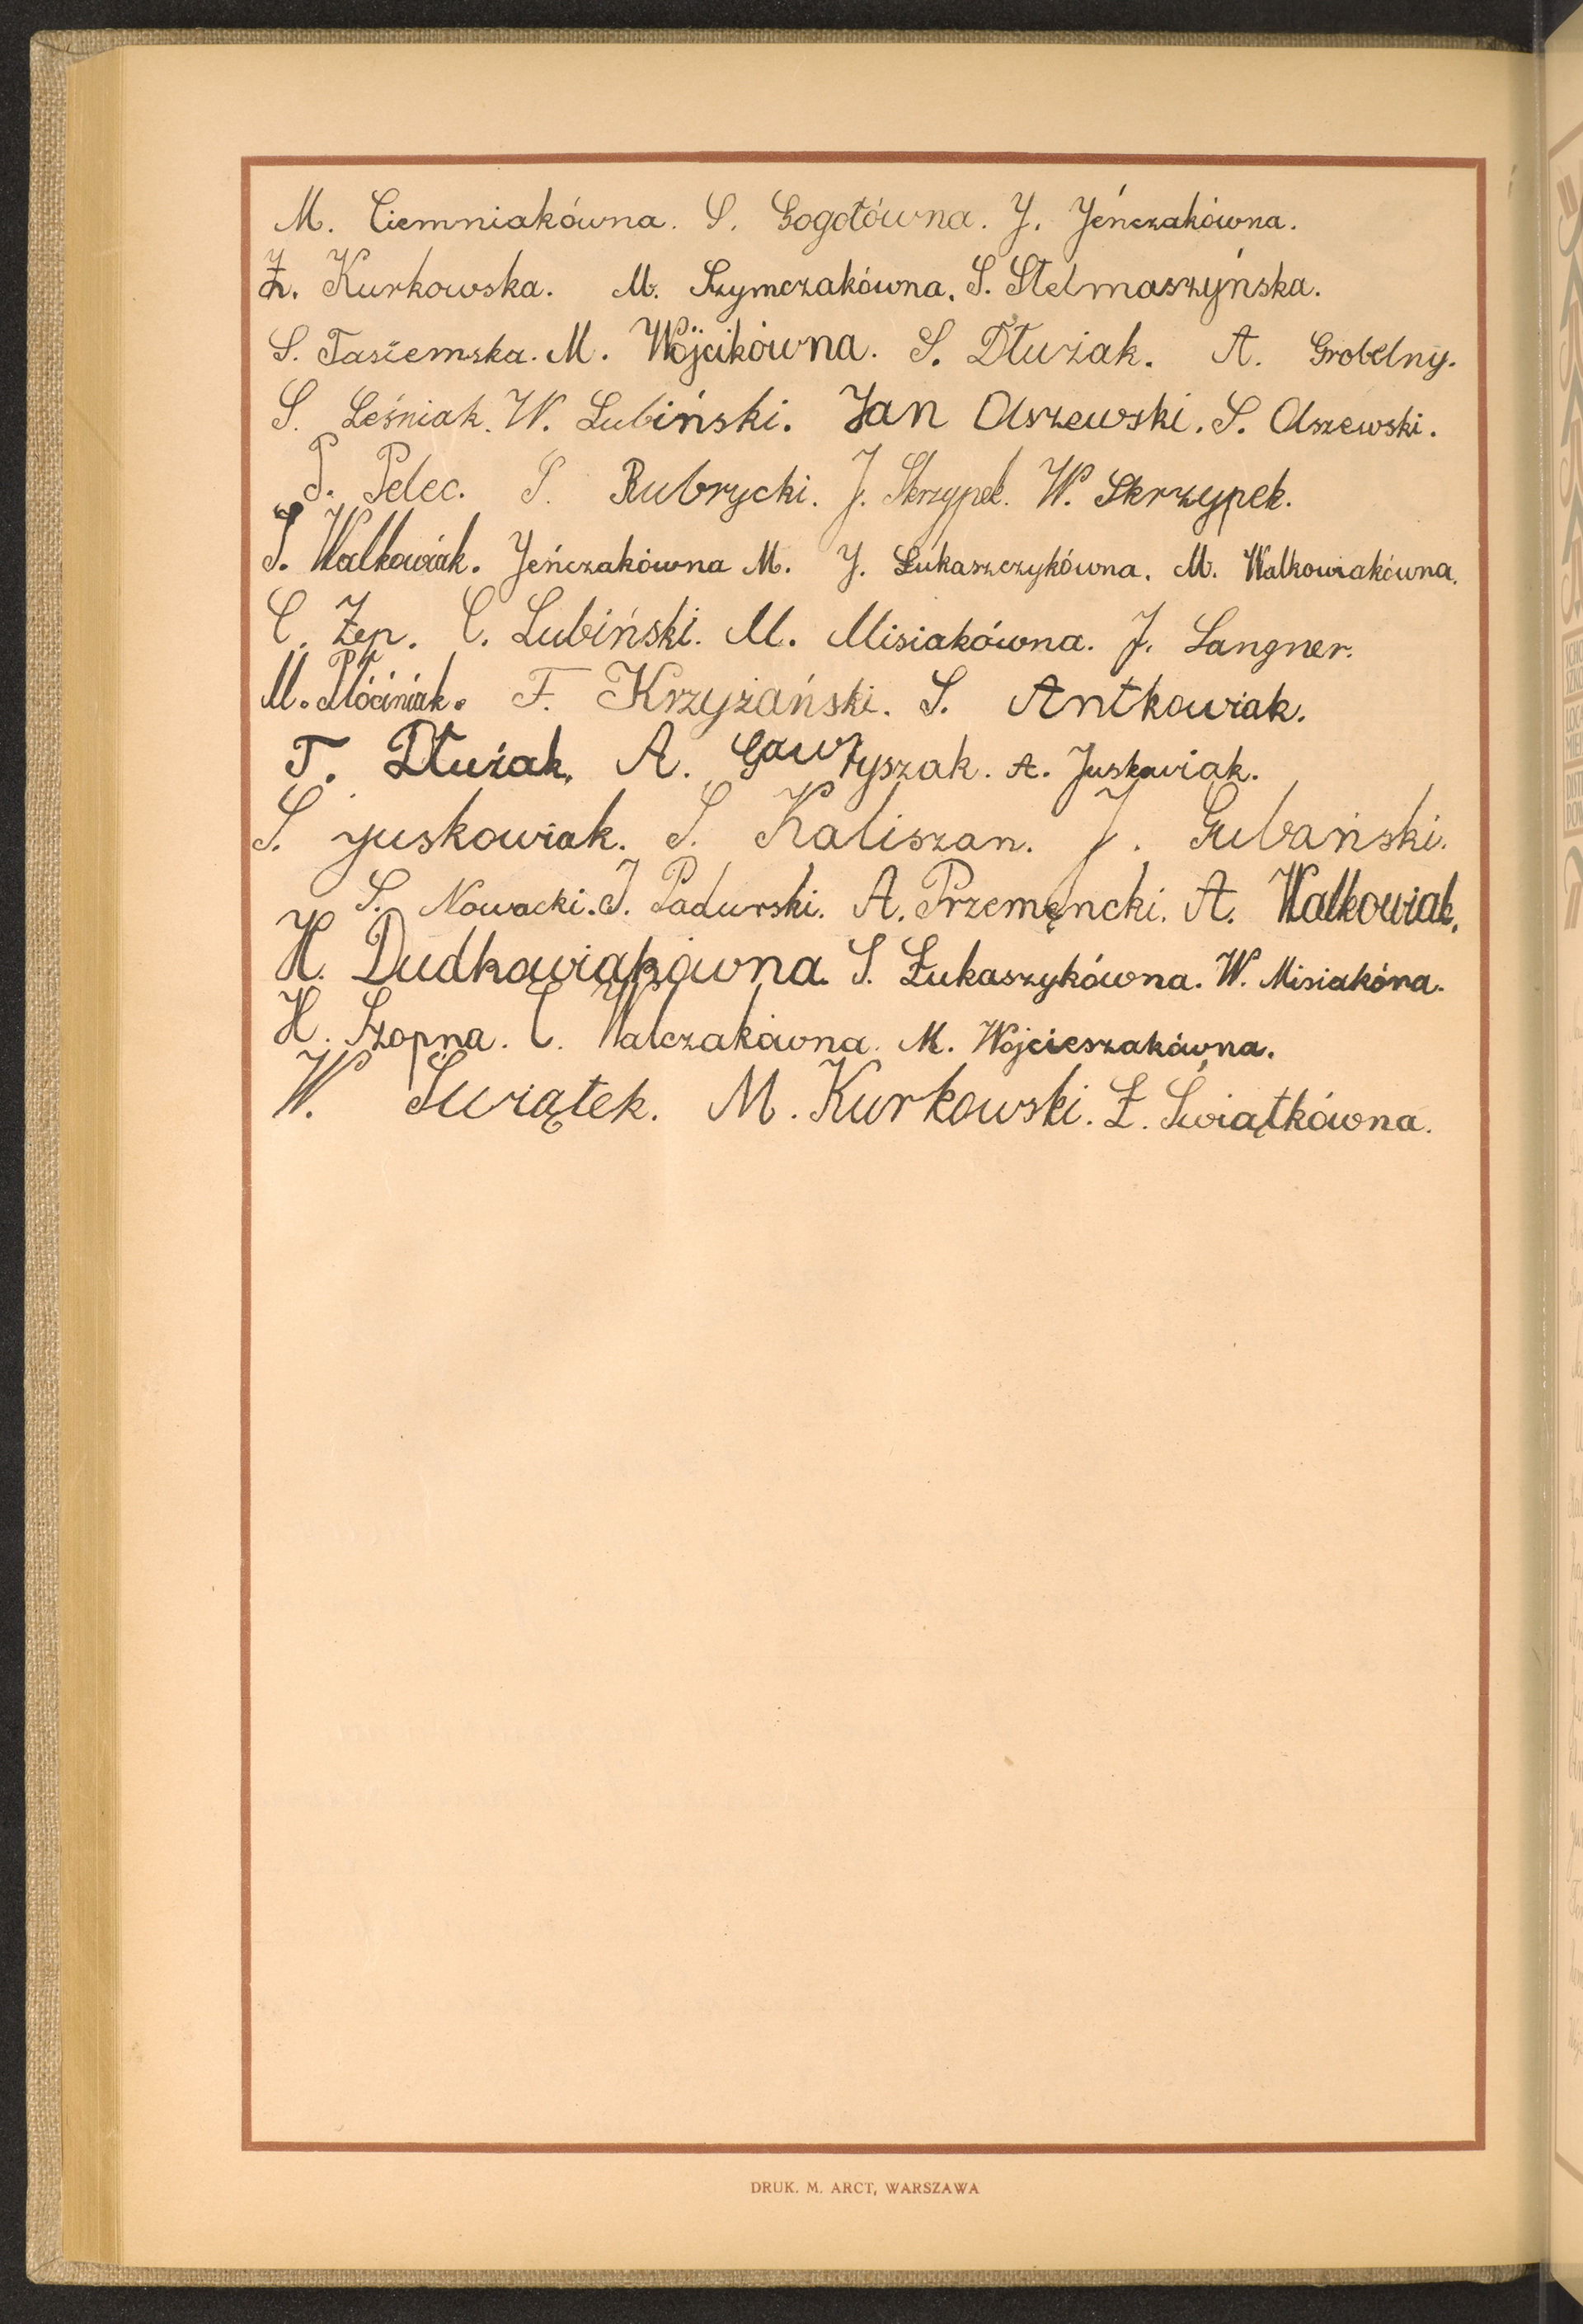 M. Ciemniakówna. S. Gogołówna. J. Jeńczakówna.
Z. Kurkowska. M. Szymczakówna. S. Stelmaszyńska.
S. Tasiemska. M. Wójcikówna. S. Dłużak. A. Grobelny.
S. Leśniak. W. Lubiński. Jan Olszewski. S. Olszewski.
P. Pelec. S. Rubrycki. J. Skrzypek. W. Skrzypek.
S. Walkowiak. Jeńczakówna M. J. Łukaszczykówna. M. Walkowiakówna.
C. Żep. C. Lubiński. M. Misiakówna. J. Langner.
M. Płóciniak. F. Krzyżański. S. Antkowiak.
T. Dłużak. A. Gawryszak. A. Juskowiak.
S. Juskowiak. S. Kaliszan. J. Gubański.
S. Nowacki. J. Padurski. A. Przemęncki. A. Walkowiak.
H. Dudkowiakówna. S. Łukaszykówna. W. Misiakóna.
H. Szopna. C. Walczakówna. M. Wojcieszakówna.
W. Świątek. M. Kurkowski. Ł. Świątkówna.
DRUK. M. ARCT, WARSZAWA